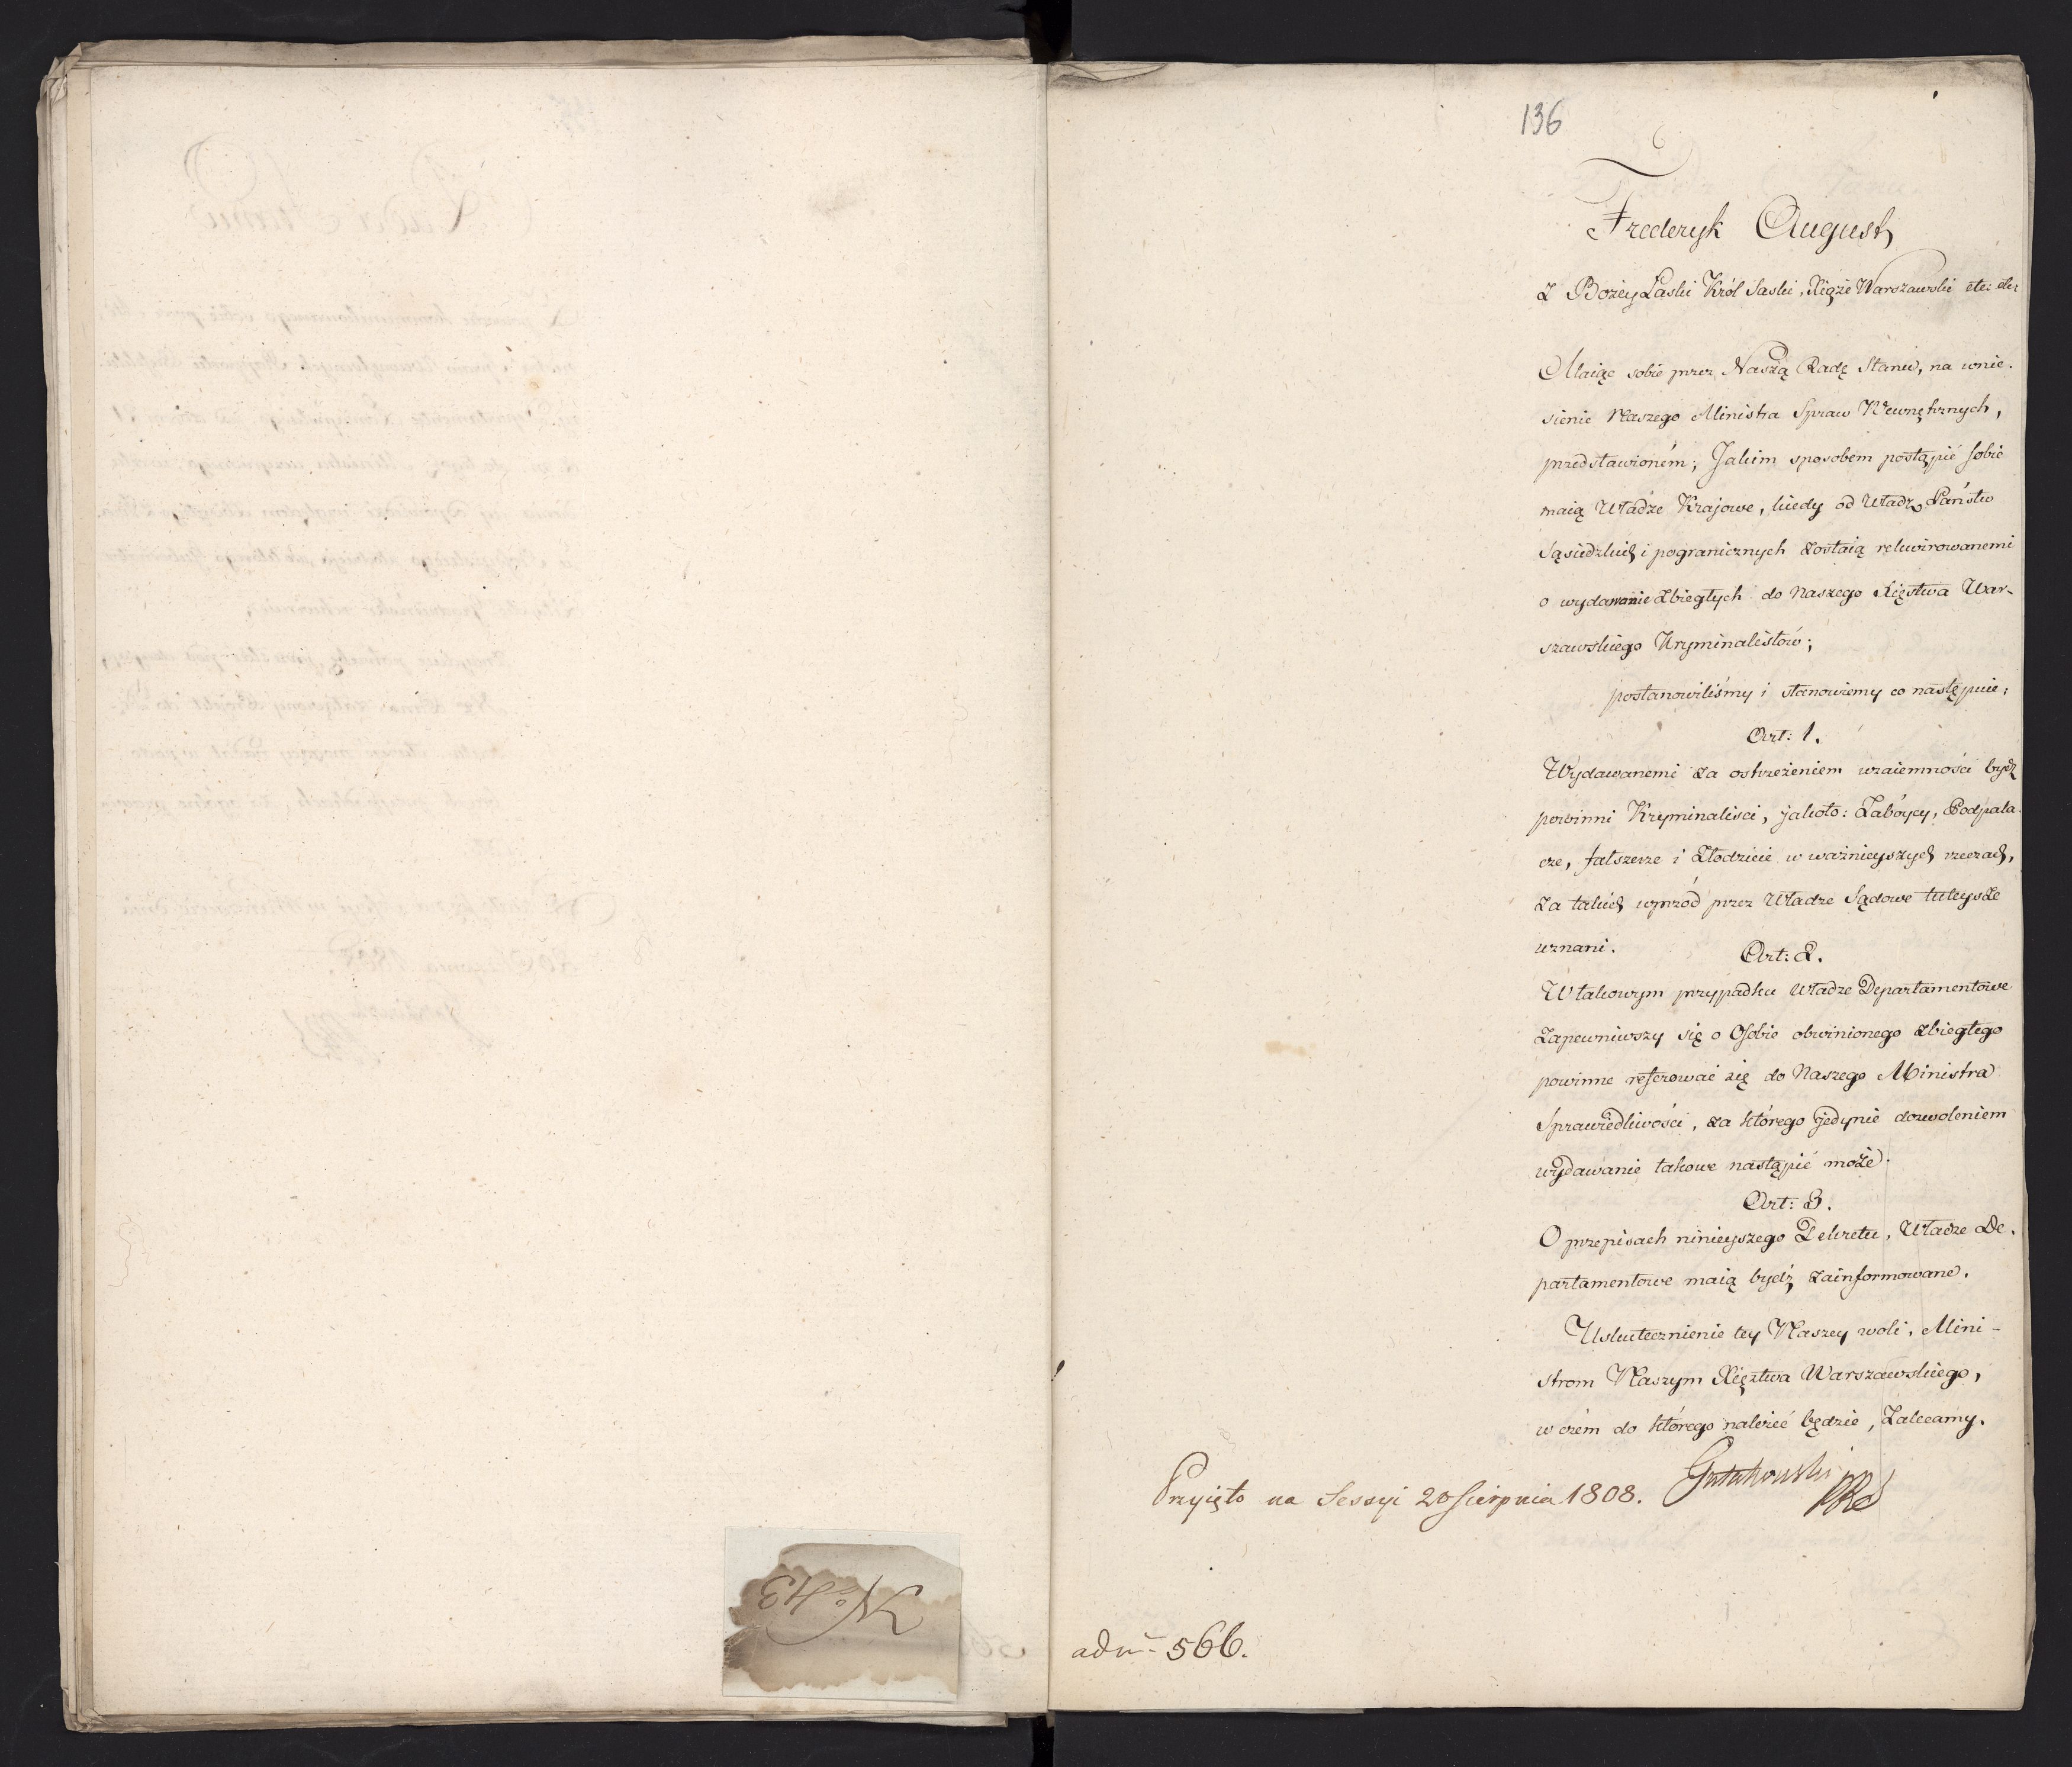 136
Frederyk August
Z Bożey Łaski Król Saski, Xiąże Warszawski etc: etc:
Maiąc sobie przez Naszą Radę Stanu, na wnie-
sienie Naszego Ministra Spraw Wewnętrznych,
przedstawioném; Jakim sposobem postąpić sobie
maią Władze Krajowe, kiedy od Władz Państw
Sąsiedzkich i pogranicznych zostaią rekwirowanemi
o wydawanie zbiegłych do Naszego Xięstwa War-
szawskiego Kryminalistów;
postanowiliśmy i stanowiemy co następuie:
Art: 1.
Wydawanemi za ostrzeżeniem wzaiemności bydź
powinni Kryminalisci, jakoto: Zabóycy, Podpala-
cze, fałszerze i Złodzieie w ważnieyszych rzeczach,
za takich wprzód przez Władze Sądowe tuteysze
uznani.
Art: 2.
W takowym przypadku Władze Departamentowe
Zapewniwszy się o Osobie obwinionego zbiegłego
powinne referować się do Naszego Ministra
Sprawiedliwości, za którego jedynie dozwoleniem
wydawanie takowe nastąpić może.
Art: 3.
O przepisach ninieyszego Dekretu, Władze De-
partamentowe maią bydź zainformowane.
Uskutecznienie tey Naszey woli, Mini-
strom Naszym Xięztwa Warszawskiego,
w czém do którego należeć będzie, Zalecamy.
Przyięto na Sessyi 20 Sierpnia 1808. Gutakowski PRS
ad nr 566.